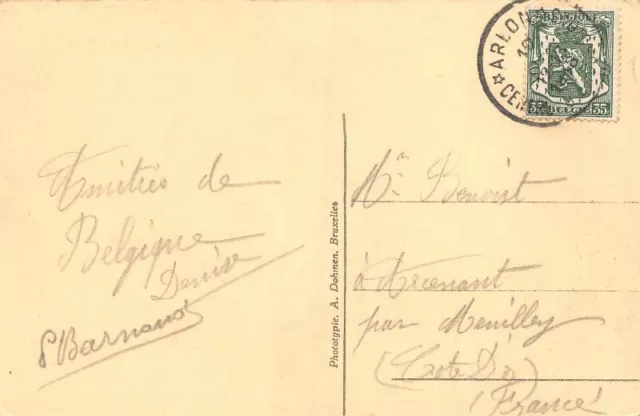 Amitiés de
Belgique
Denise
P Barnaud
Phototypie, A. Dohmen, Bruxelles
ARLON
CEN
BELGIQUE
35 BELGIE 35
Mr Benoist
à Arcenant
par Meuilley
(Cote D'or)
(France)